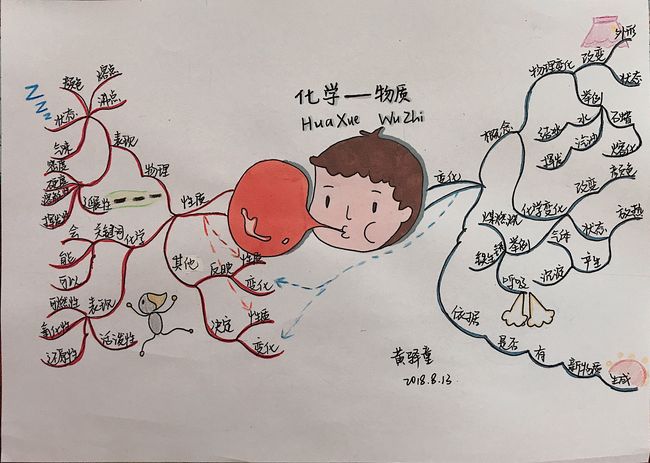 化学—物质
HuaXue WuZhi
性质
物理
表现
颜色
熔点
沸点
状态
气味
密度
硬度
溶解性
挥发性
延展性
化学
关键词
会
能
可以
表现
可燃性
氧化性
还原性
活泼性
其他
反映
性质
变化
决定
性质
变化
变化
概念
物理变化
改变
外形
状态
举例
水
结冰
石蜡
熔化
汽油
挥发
化学变化
改变
颜色
状态
放热
气体
产生
沉淀
举例
煤燃烧
铁生锈
呼吸
依据
是否
有
新物质
生成
黄驿童
2018.8.13